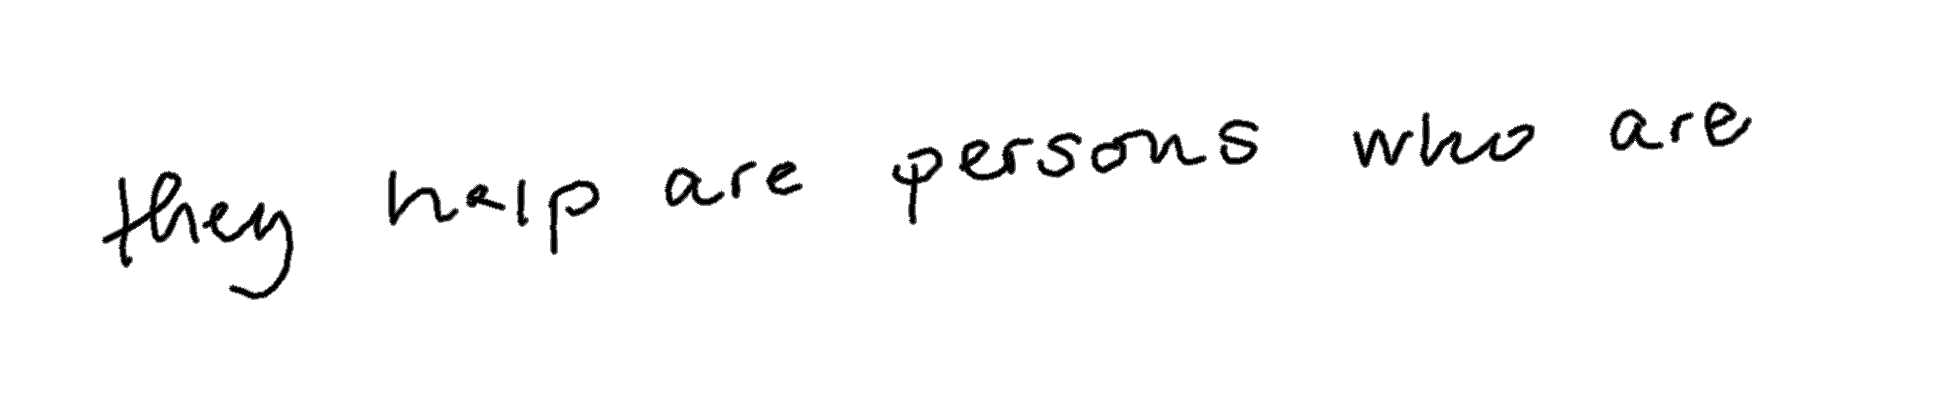 they help are persons who are